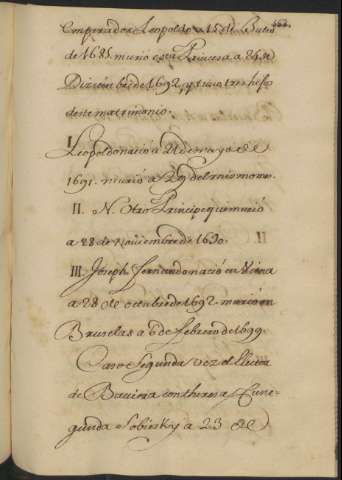 Emperador Leopoldo a 15 de Julio
de 1685. murio esta Princesa a 24 de
Diziembre de 1692. y tuvo tres hijos
deste matrimonio.
I.
Leopoldo nació a 22 de mayo de
1691. murio a 29 del mismo mes.
II. N. Otro Principe que murió
a 28 de Noviembre de 1690.
III. Joseph Fernando nació en Viena
a 28 de octubre de 1692. murió en
Bruselas a 6 de febrero de 1699.
Caso segunda vez el Elector
de Baviera con theresa Cune-
gunda Sobiesky a 23 de